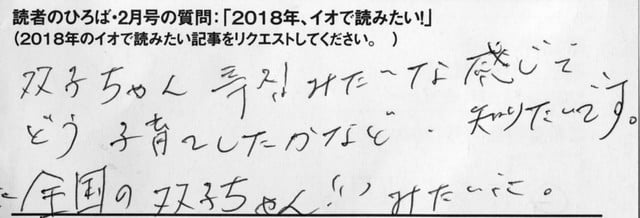 読者のひろば・2月号の質問：「2018年、イオで読みたい！」
（2018年のイオで読みたい記事をリクエストしてください。　）
双子ちゃん 特集！ みた〜な 感じで
どう 子育てしたかなど、知りたいです。
全国の 双子ちゃん!! みたいに。